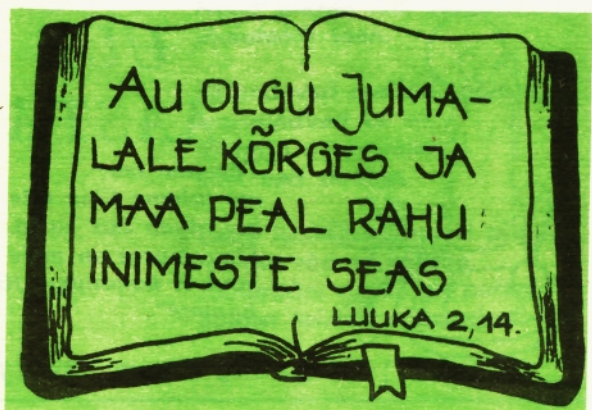 AU OLGU JUMA-
LALE KÕRGES JA
MAA PEAL RAHU
INIMESTE SEAS
LUUKA 2,14.